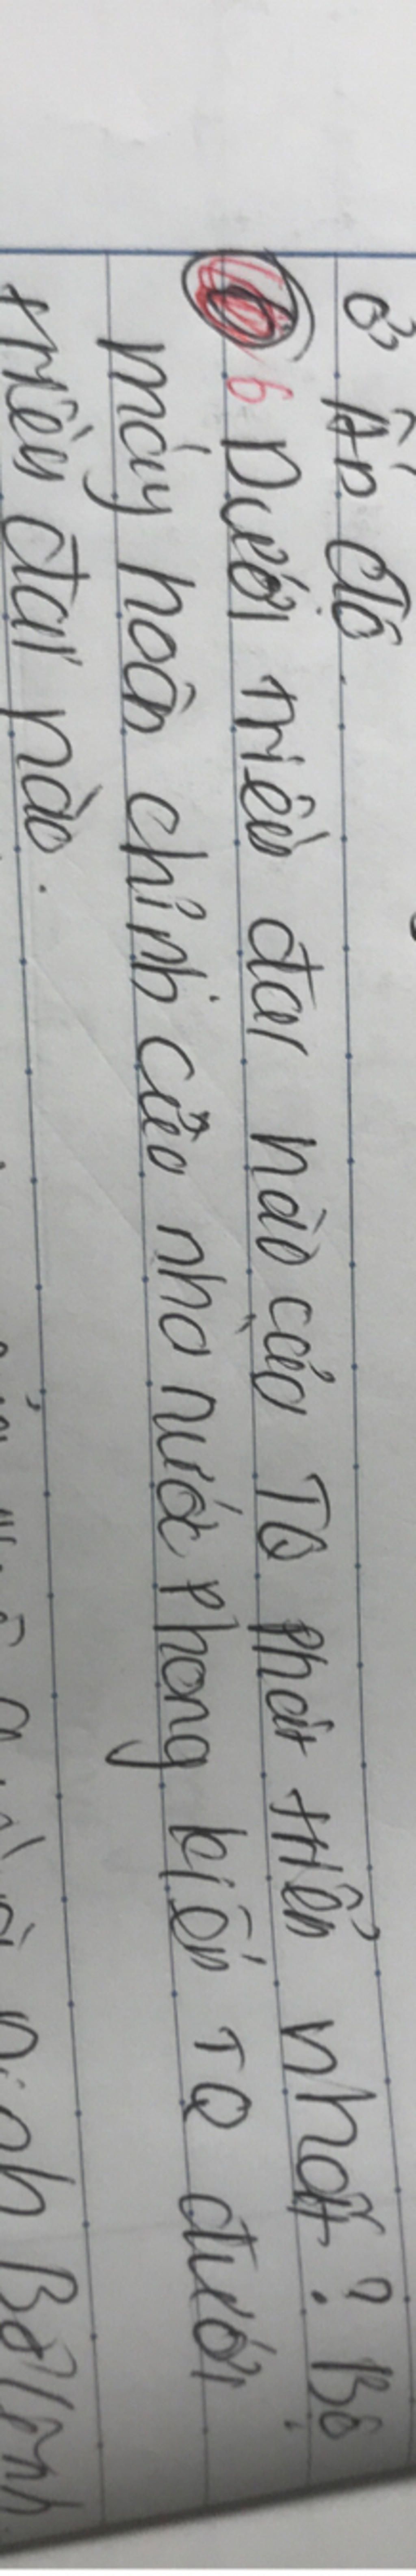 ở Ấn độ.
6 Dưới triều đại nào của TQ phát triển nhất? Bộ
máy hoàn chỉnh của nhà nước phong kiến TQ dưới
triều đại nào.